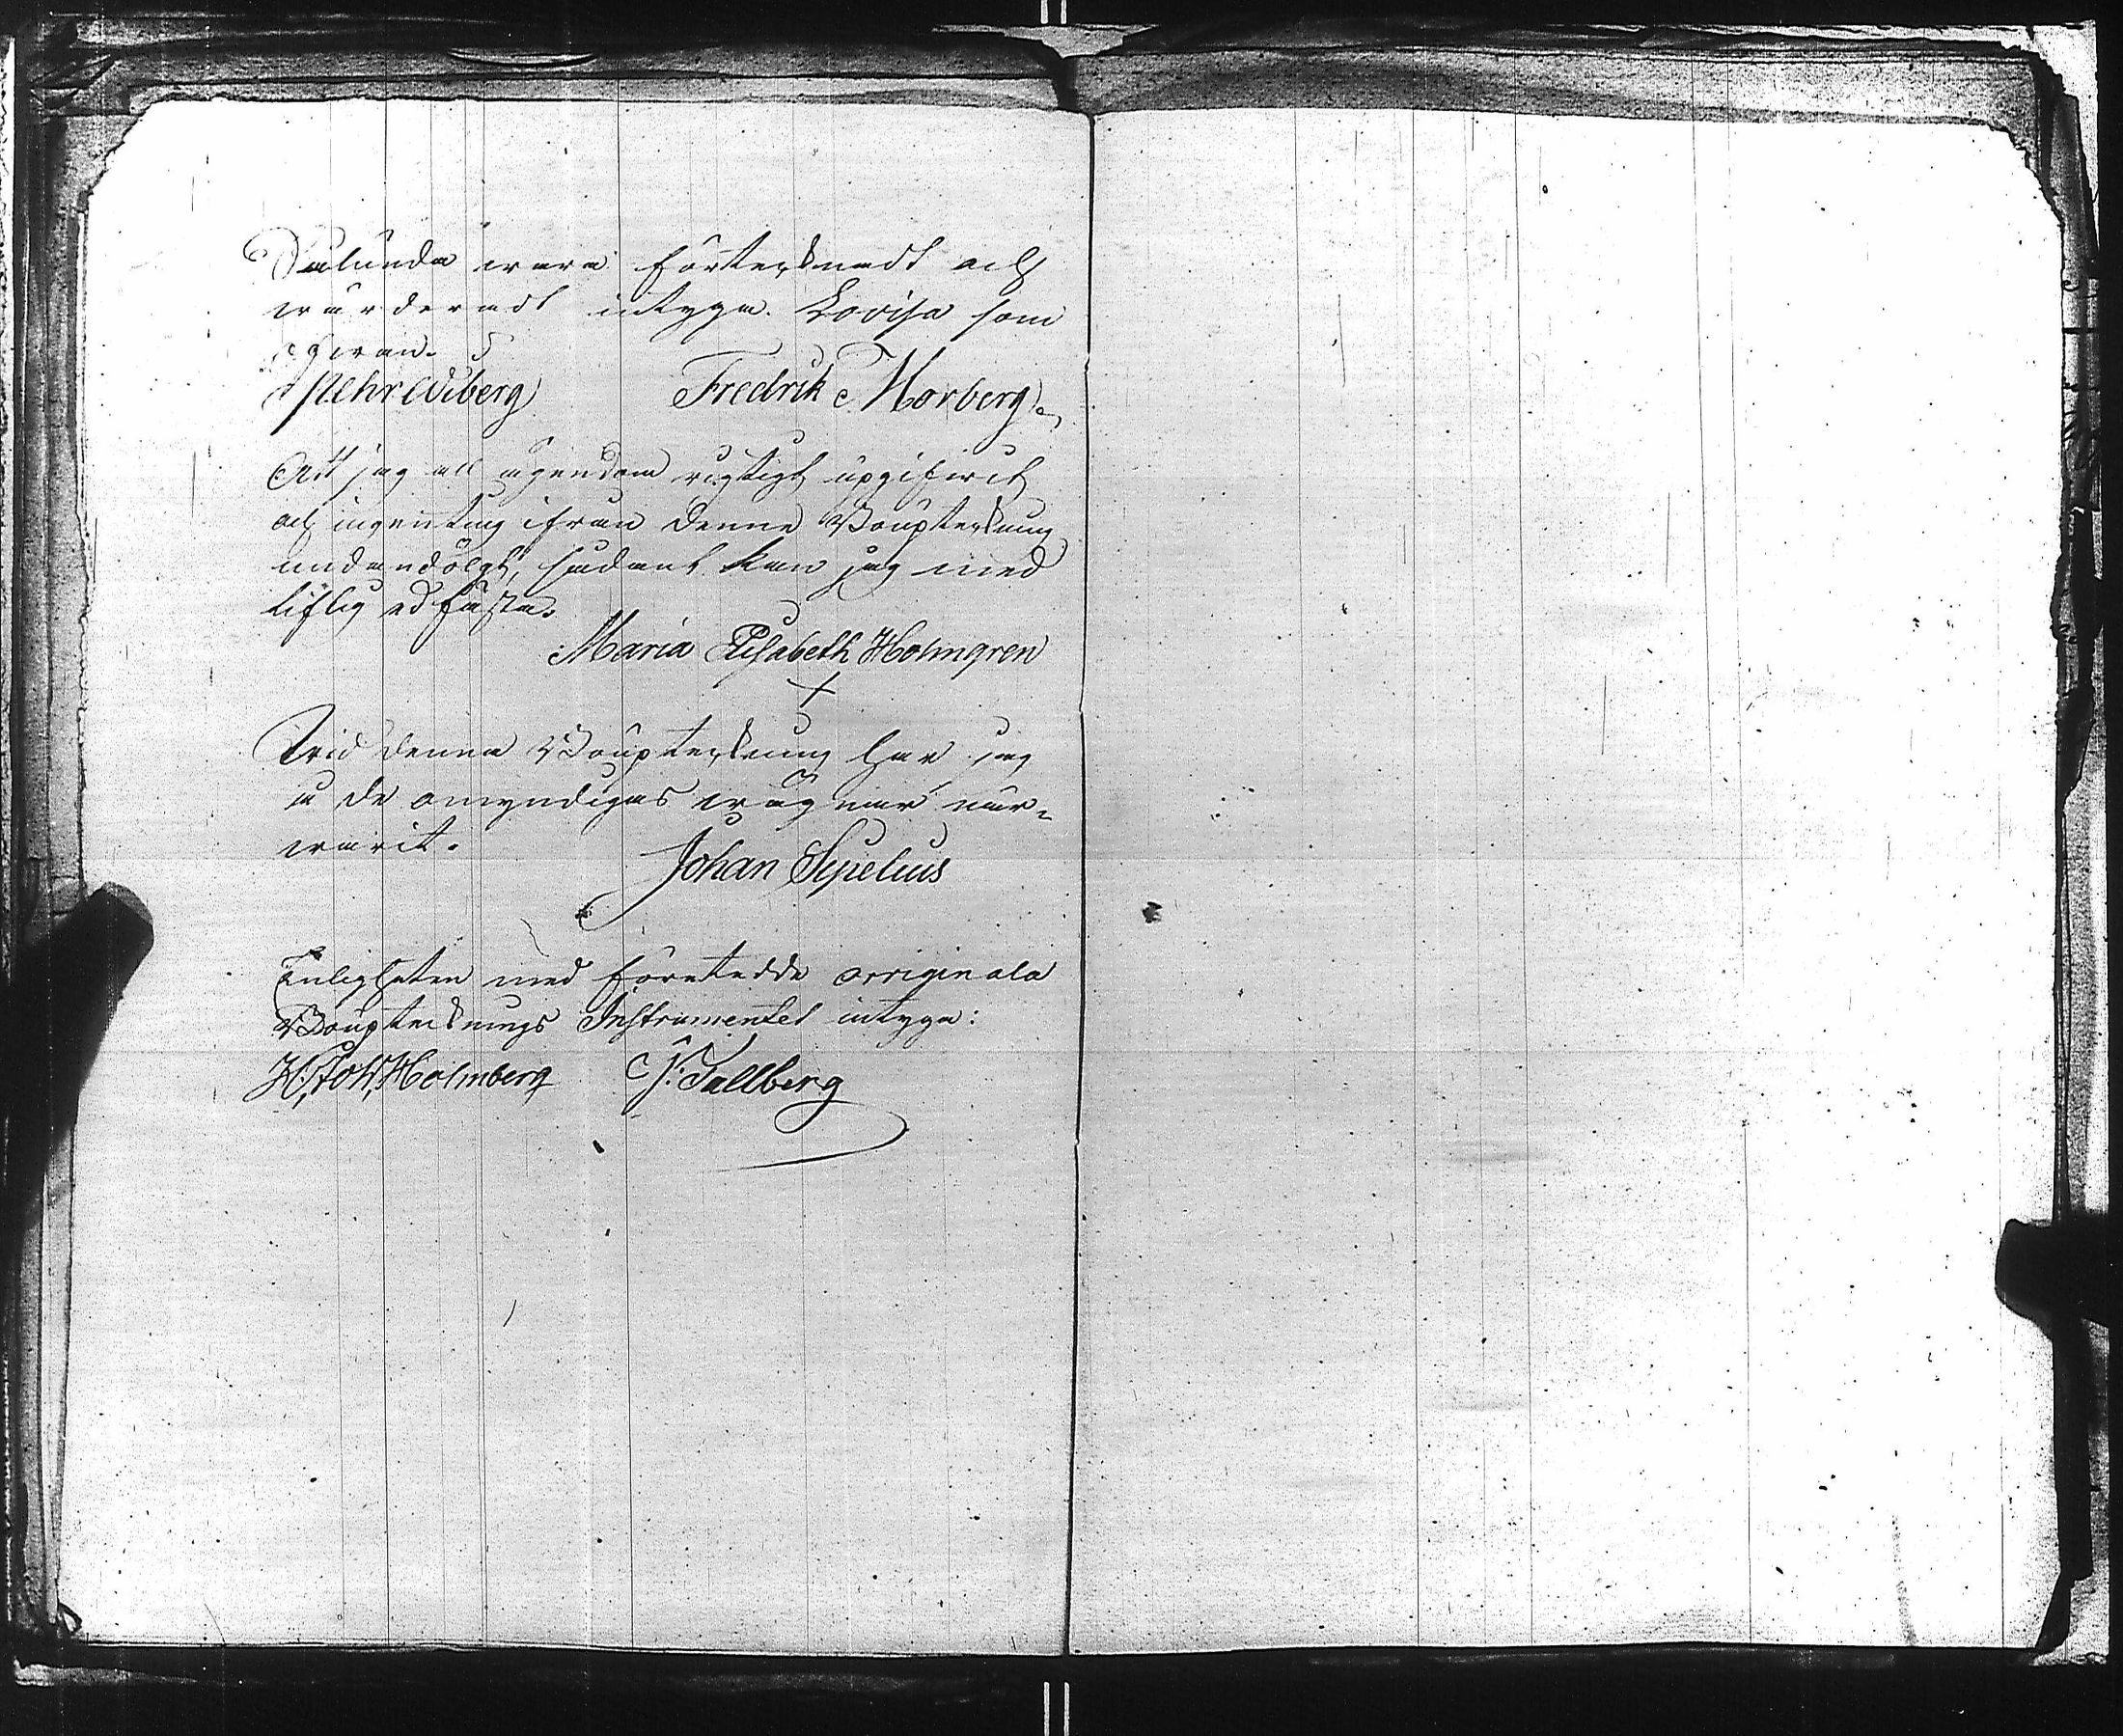 Sålunda wara förtecknadt och
wärderadt intyga. Lovisa som
ofwan.
Pehr Wiberg Fredrik Norberg
Att jag all egendom rigtigt upgifwit
och ingenting ifrån denne Bouptekning
undandölgt, sådant kan jag med
liflig ed fästa.
Maria Elisabeth Holmgren
Wid denna Bouptekning har jag
å de omyndigas wägnar när-
warit.
Johan Sipelius
Enligheten med företedde orriginala
Bouptecknings Instrumentet intyga:
Holmberg Tallberg